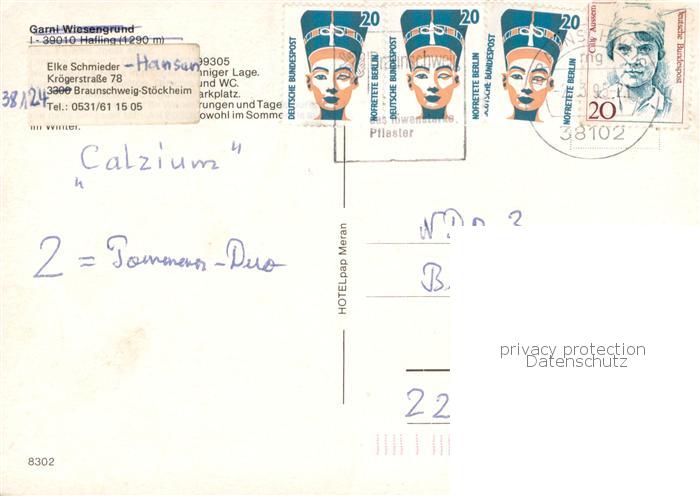 Garni Wiesengrund
I - 39010 Hafling (1290 m)
99305
Elke Schmieder - Hansen
Krögerstraße 78
38124
3300 Braunschweig-Stöckheim
Tel.: 0531/61 15 05
niger Lage.
und WC.
arkplatz.
rungen und Tage
owohl im Somm
im Winter.
20
DEUTSCHE BUNDESPOST
NOFRETETE BERLIN
20
DEUTSCHE BUNDESPOST
NOFRETETE BERLIN
20
DEUTSCHE BUNDESPOST
NOFRETETE BERLIN
Cilly Aussem
Deutsche Bundespost
20
Braunschweig
das löwenstarke
Pflaster
38102
"Calzium"
2 = Pommern-Duo
HOTELpap Meran
NDR 2
B
22
privacy protection
Datenschutz
8302